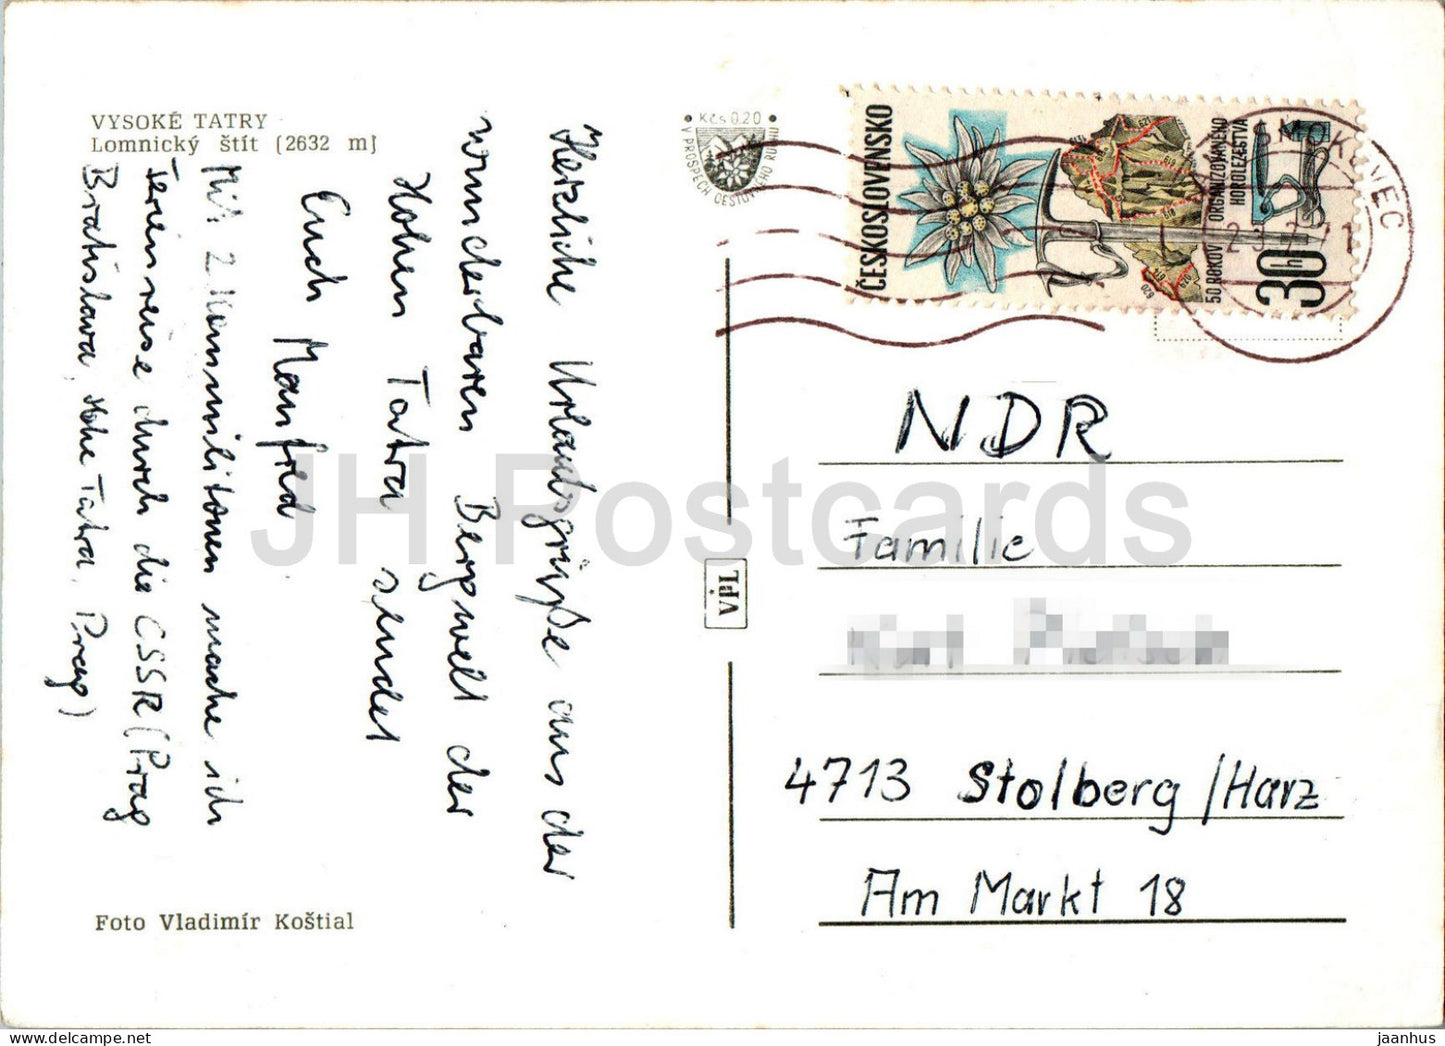 VYSOKÉ TATRY
Lomnický štít (2632 m)
Herzliche Urlaubsgrüße aus der
wunderbaren Bergwelt der
Hohen Tatra sendet
Euch Manfred
Mit 2 Kommilitonen mache ich
Ferienreise durch die CSSR (Prag
Bratislava, Hohe Tatra, Prag)
Foto Vladimír Koštial
Kčs 0.20
V PROSPECH CESTOVNÉHO RUCHU
VPL
ČESKOSLOVENSKO
50 ROKOV ORGANIZOVANÉHO
HOROLEZECTVA
30h
SMOKOVEC
NDR
Familie
4713 Stolberg/Harz
Am Markt 18
JH Postcards
jaanhus